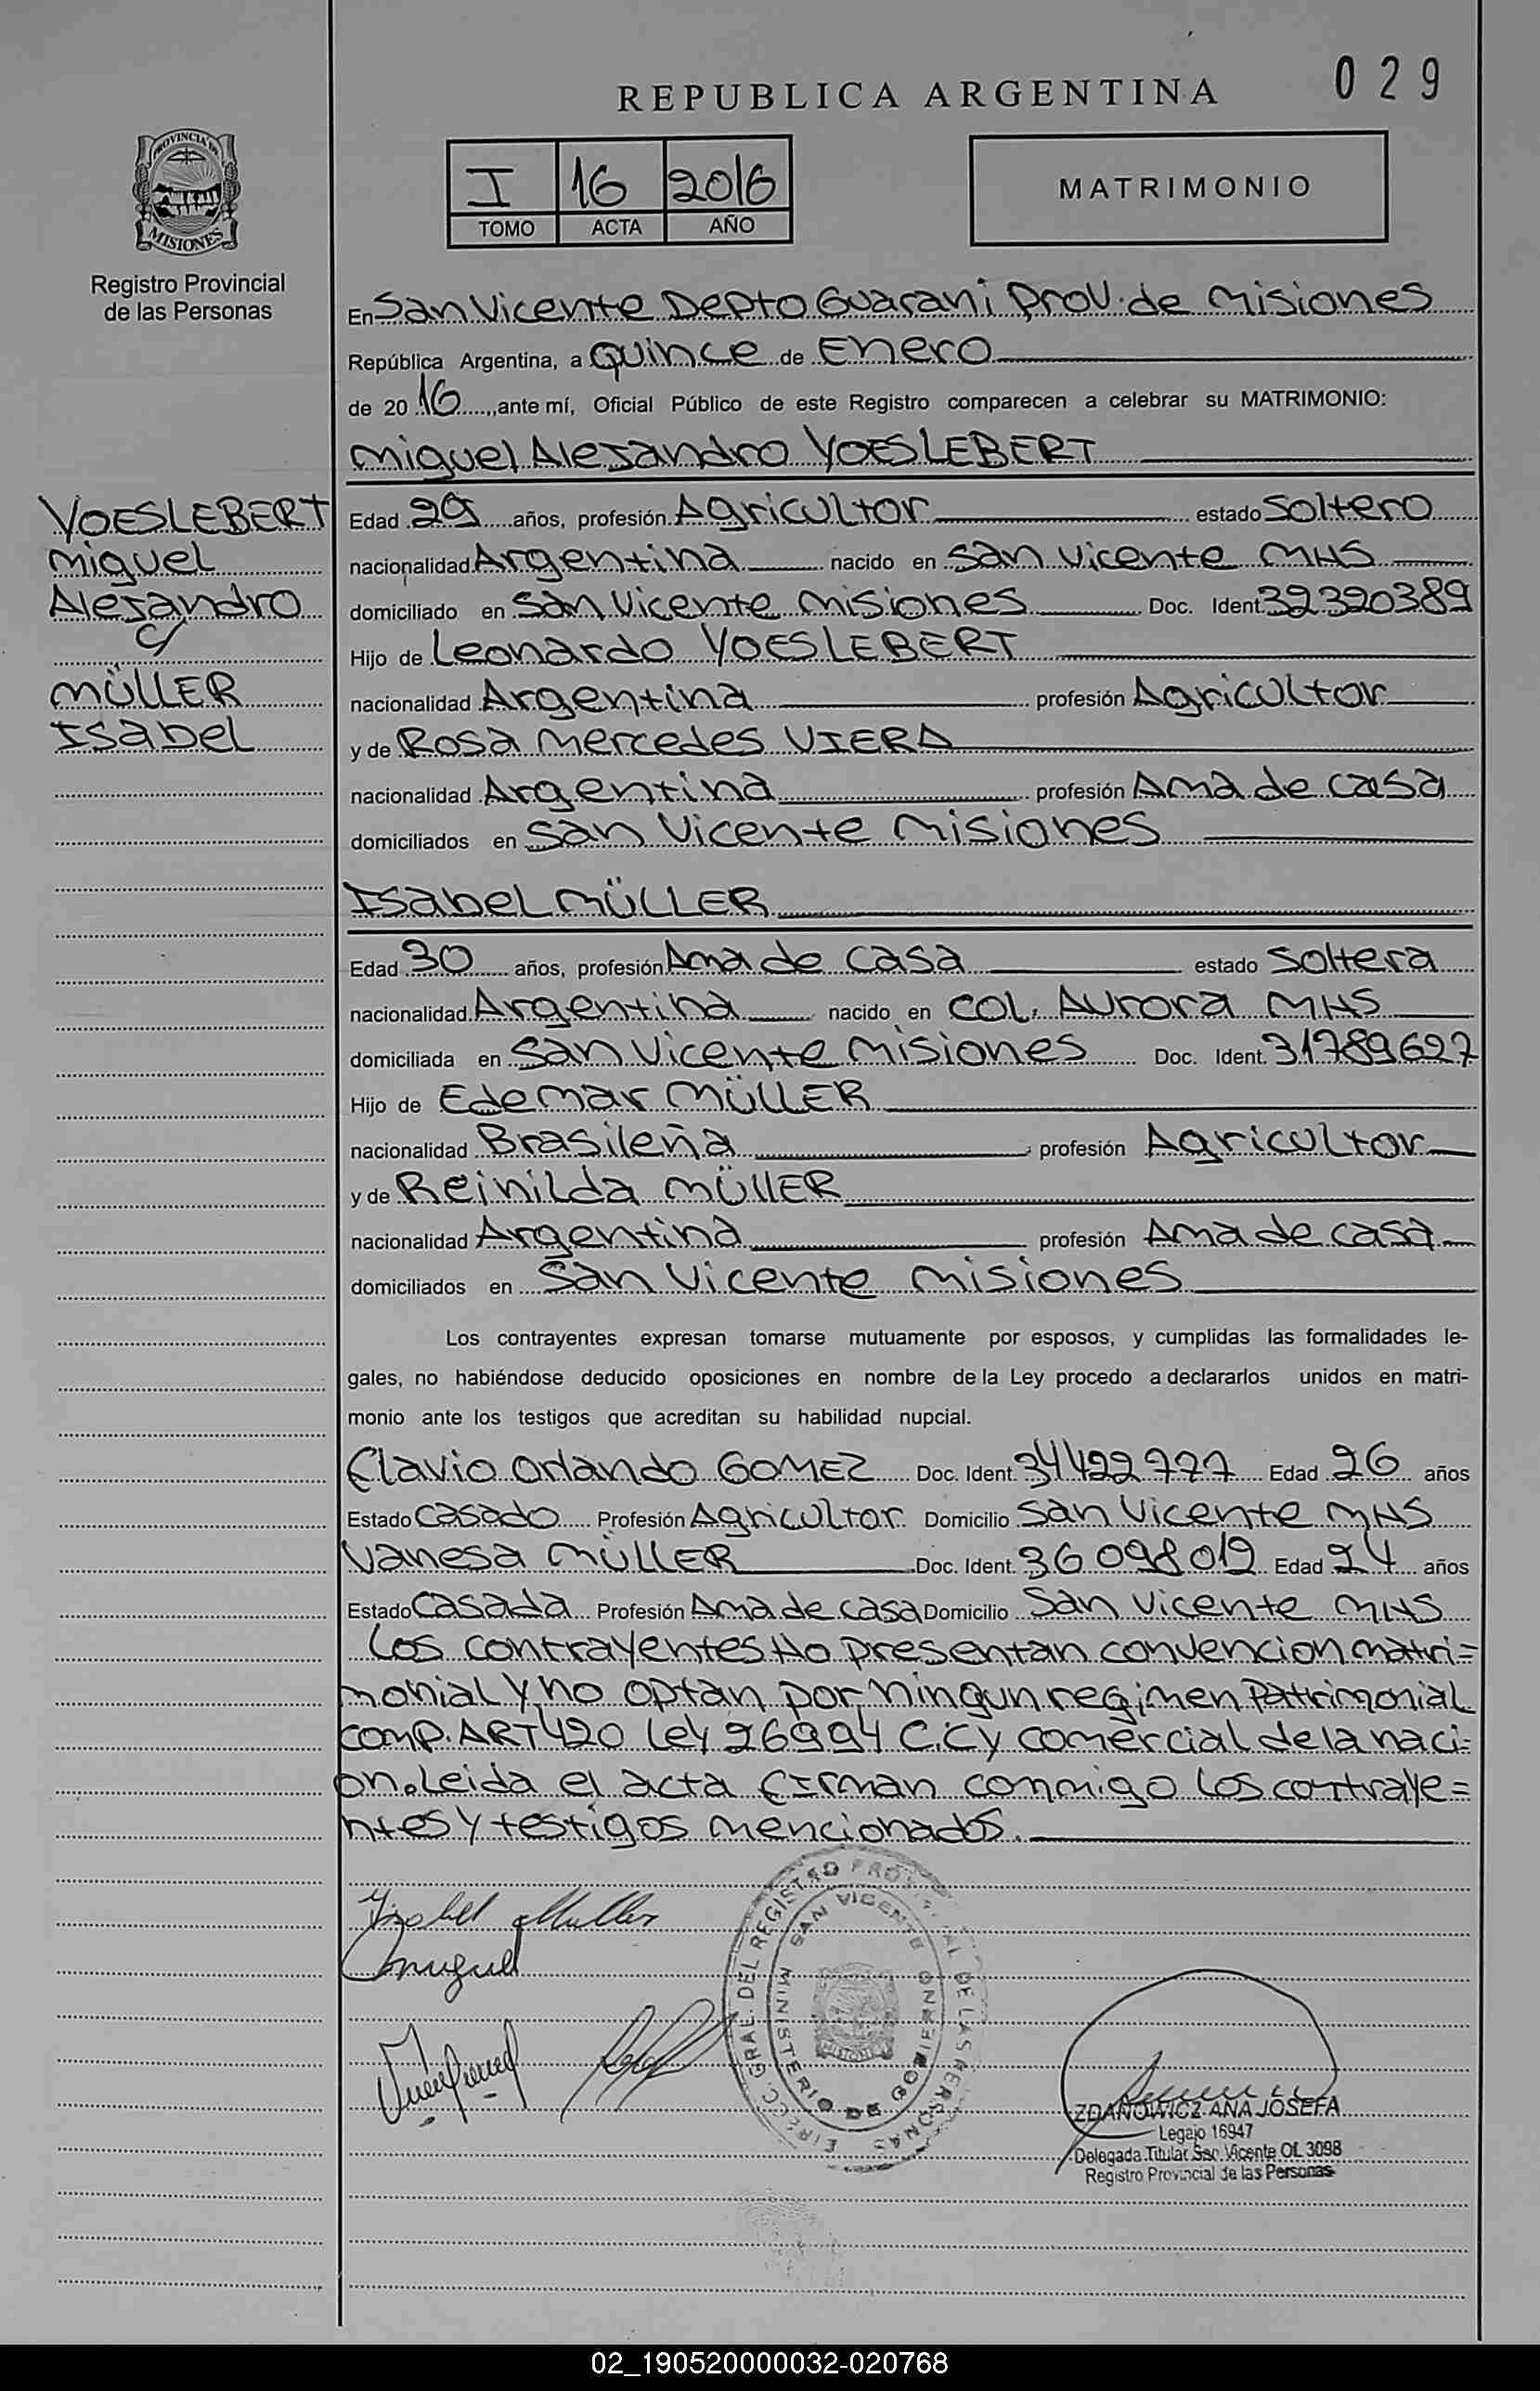 029
REPUBLICA ARGENTINA
PROVINCIA DE
MISIONES
Registro Provincial
de las Personas
I 16 2016
TOMO ACTA AÑO
MATRIMONIO
En San Vicente Depto Guarani Prov. de Misiones
República Argentina, a Quince de Enero
de 20 16, ante mí, Oficial Público de este Registro comparecen a celebrar su MATRIMONIO:
Miguel Alejandro YOESLEBERT
YOESLEBERT
Miguel
Alejandro
c/
MÜLLER
Isabel
Edad 29 años, profesión Agricultor estado Soltero
nacionalidad Argentina nacido en San Vicente MNS
domiciliado en San Vicente Misiones Doc. Ident. 32320389
Hijo de Leonardo YOESLEBERT
nacionalidad Argentina profesión Agricultor
y de Rosa Mercedes VIERA
nacionalidad Argentina profesión Ama de casa
domiciliados en San Vicente Misiones
Isabel MÜLLER
Edad 30 años, profesión Ama de casa estado Soltera
nacionalidad Argentina nacido en COL. Aurora MNS
domiciliada en San Vicente Misiones Doc. Ident. 31789627
Hijo de Edemar MÜLLER
nacionalidad Brasileña profesión Agricultor
y de Reinilda MÜLLER
nacionalidad Argentina profesión Ama de casa
domiciliados en San Vicente Misiones
Los contrayentes expresan tomarse mutuamente por esposos, y cumplidas las formalidades le-
gales, no habiéndose deducido oposiciones en nombre de la Ley procedo a declararlos unidos en matri-
monio ante los testigos que acreditan su habilidad nupcial.
Flavio Orlando GOMEZ Doc. Ident. 34422777 Edad 26 años
Estado Casado Profesión Agricultor Domicilio San Vicente MNS
Vanesa MÜLLER Doc. Ident. 36098019 Edad 24 años
Estado Casada Profesión Ama de casa Domicilio San Vicente MNS
Los contrayentes No presentan convencion matri=
monial y no optan por ningun regimen Patrimonial
comp. ART 420 Ley 26994 C.C y comercial de la naci=
on. Leida el acta firman conmigo los contraye=
ntes y testigos mencionados.
Isabel Muller
miguel
DIRECC. GRAL. DEL REGISTRO PROVINCIAL DE LAS PERSONAS
SAN VICENTE
MINISTERIO DE GOBIERNO
MISIONES
ZDANOWICZ ANA JOSEFA
Legajo 16947
Delegada Titular Sec. Vicente Of. 3098
Registro Provincial de las Personas
02_190520000032-020768